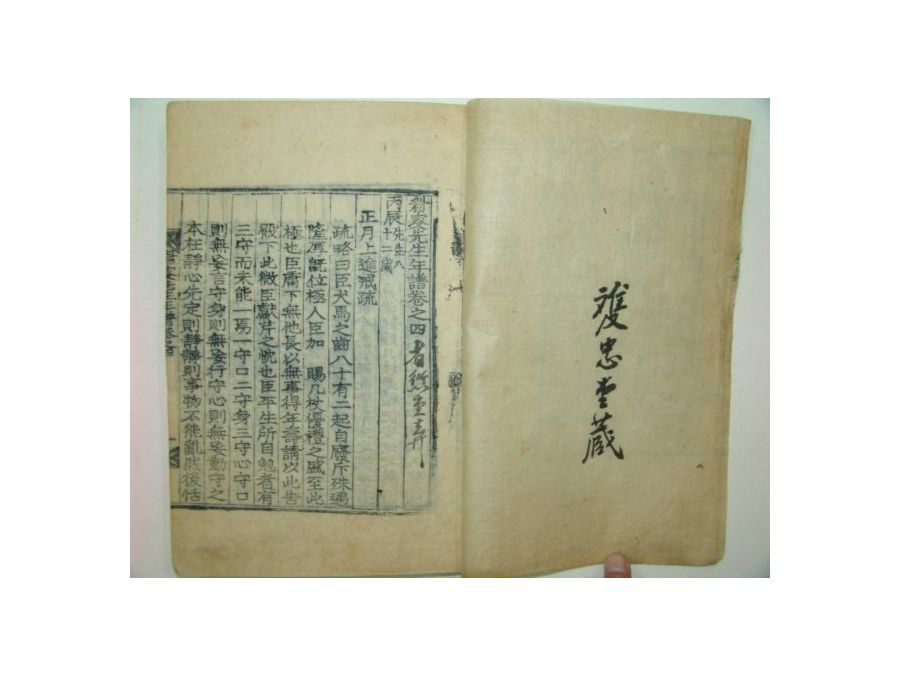 忠堂藏
眉叟先生年譜卷之四
丙辰先生八十二歲
正月上進戒疏
疏略曰臣犬馬之齒八十有二起自廢斥殊遇
隆厚旣位極人臣加 賜几杖優禮之盛至此
極也臣庸下無他長以無事得年壽請以此告
殿下此微臣獻芹之忱也臣平生所自勉者有
三守而未能一焉一守口二守身三守心守口
則無妄言守身則無妄行守心則無妄動守之
本在靜心先定則靜靜則事物不能亂然後恬